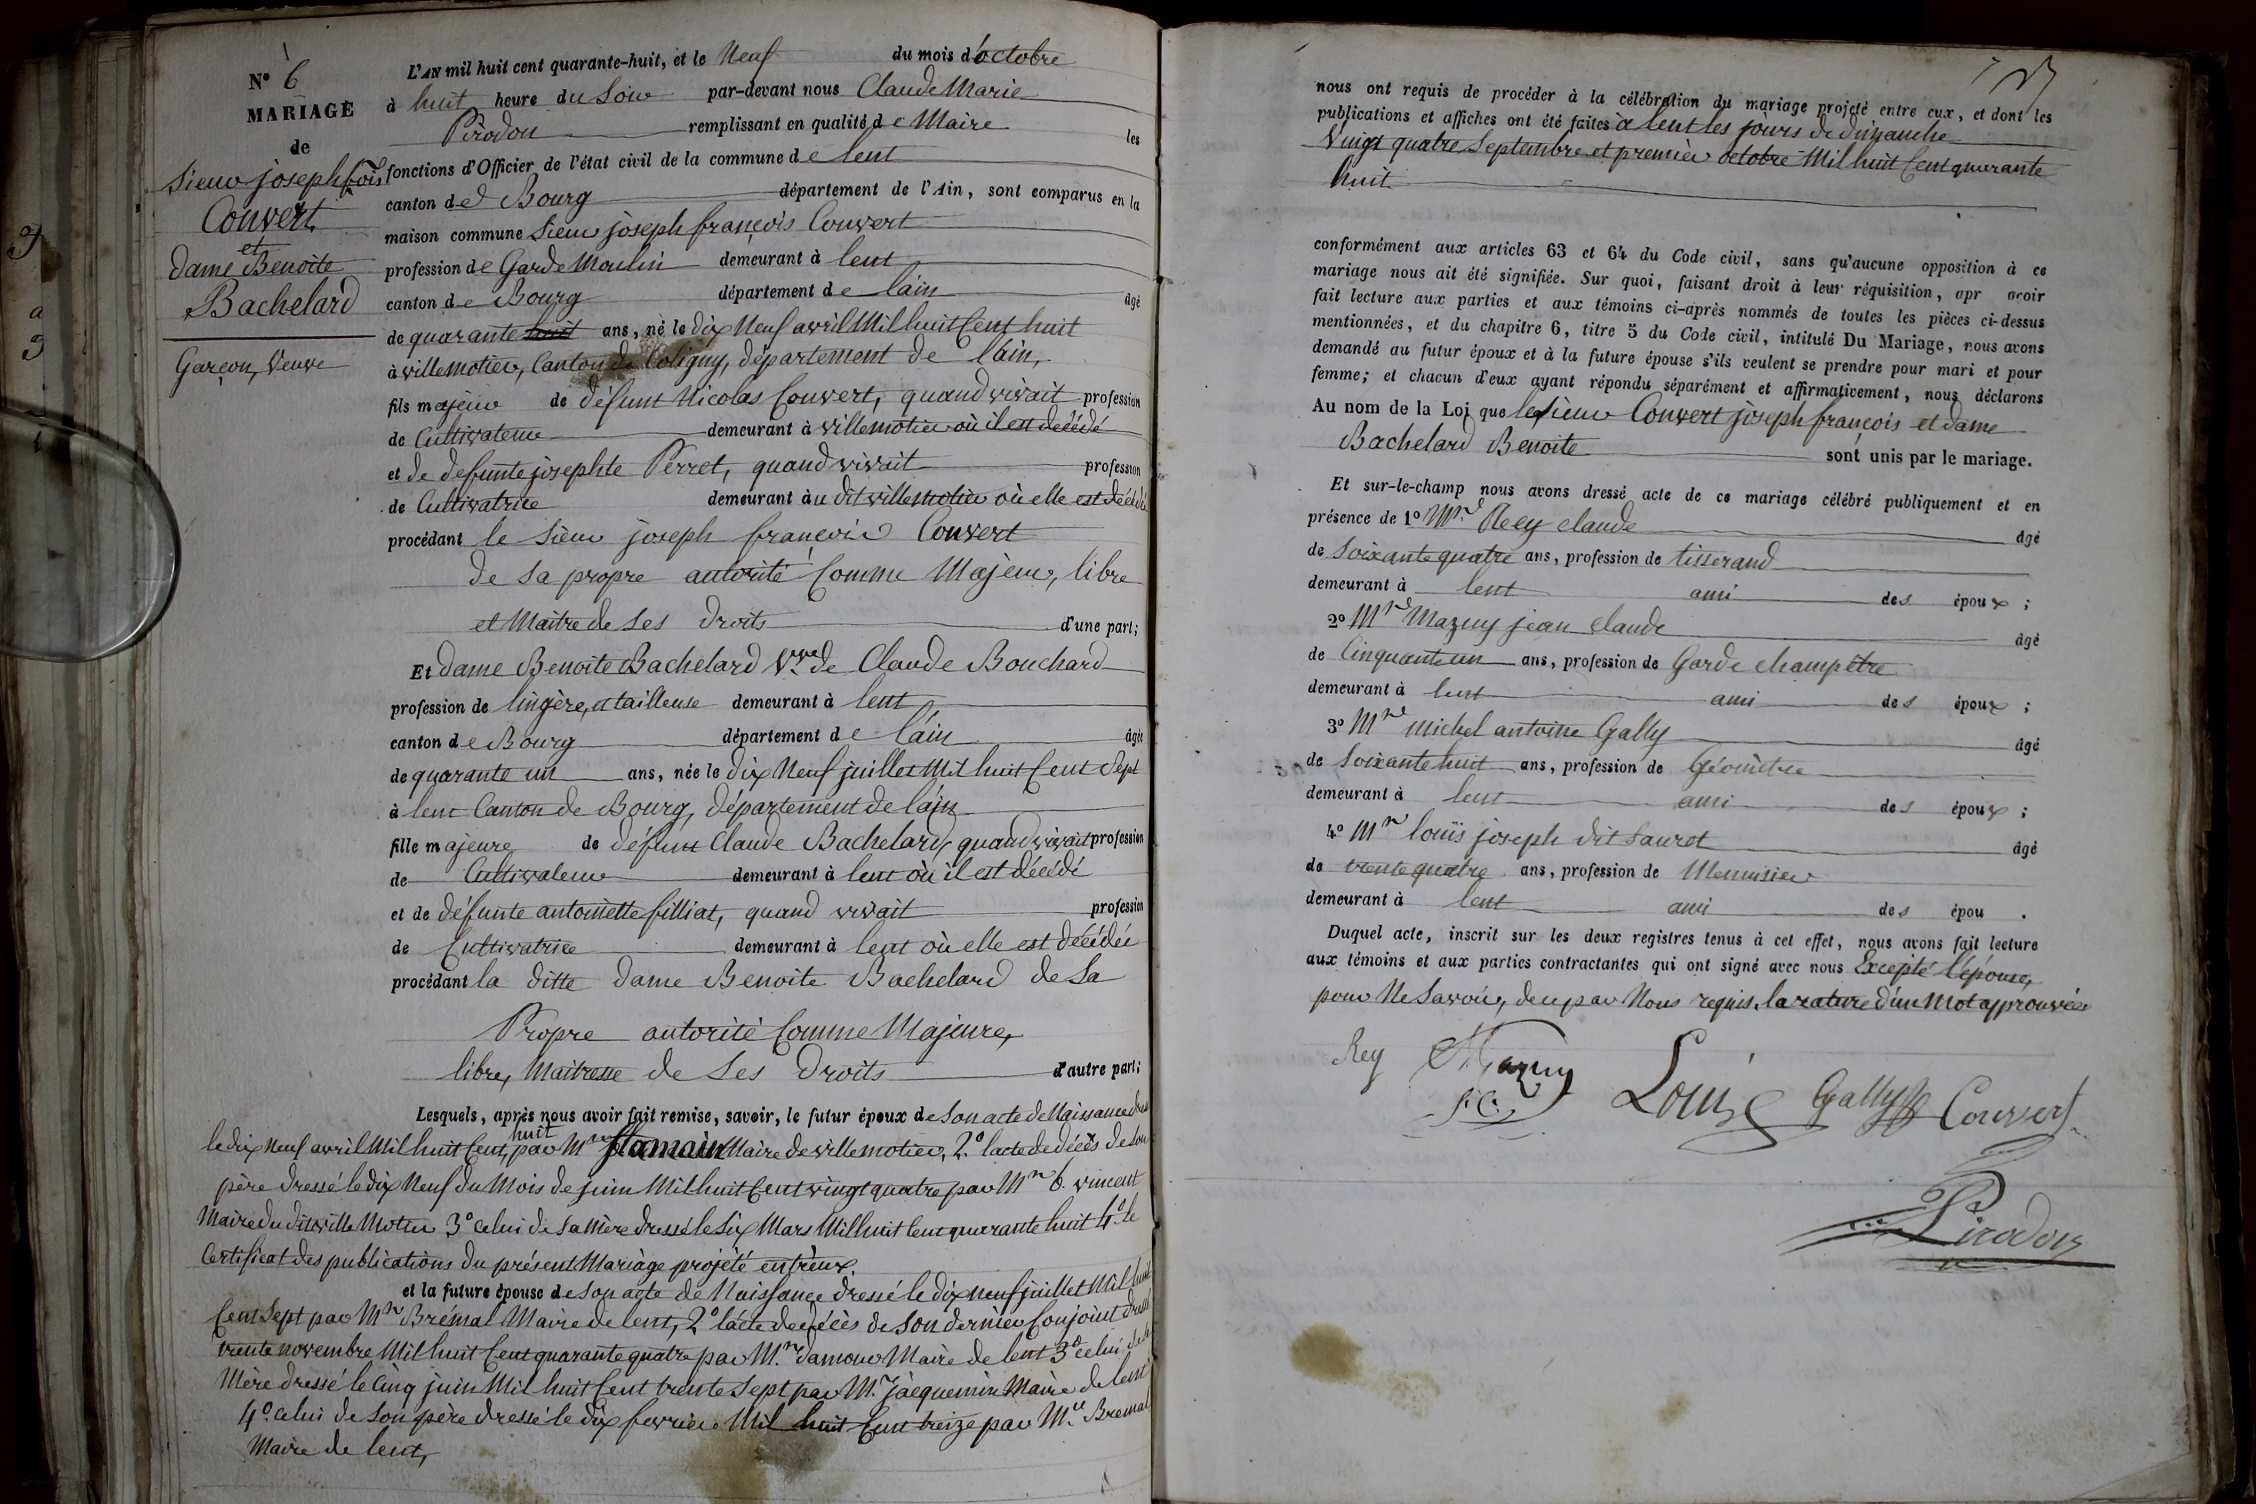 N° 6
MARIAGE
de
Sieur joseph fçois
Convert
et
dame Benoite
Bachelard
Garçon, Veuve
L'AN mil huit cent quarante-huit, et le Neuf du mois d'octobre
à huit heure du Soir par-devant nous Claude Marie
Pirodon remplissant en qualité de Maire les
fonctions d'Officier de l'état civil de la commune de lent
canton de Bourg département de l'Ain, sont comparus en la
maison commune Sieur joseph françois Convert
profession de Garde Moulin demeurant à lent
canton de Bourg département de l'ain âgé
de quarante huit ans, né le dix Neuf avril Mil huit Cent huit
à villemotier, Canton de Coligny, département de l'ain,
fils majeur de défunt Nicolas Convert, quand vivait profession
de Cultivateur demeurant à villemotier où il est décédé
et de defunte josephte Perret, quand vivait profession
de Cultivatrice demeurant àu dit villemotier où elle est décédée
procédant le Sieur joseph françois Convert
de sa propre autorité Comme Majeur, libre
et Maitre de Ses droits d'une part;
Et dame Benoite Bachelard Vve de Claude Bouchard
profession de lingère, et tailleuse demeurant à lent
canton de Bourg département de l'ain âgée
de quarante un ans, née le dix Neuf juillet Mil huit Cent Sept
à lent Canton de Bourg, département de l'ain
fille majeure de défunt Claude Bachelard, quand vivait profession
de Cultivateur demeurant à lent où il est décédé
et de défunte antoinette filliat, quand vivait profession
de Cultivatrice demeurant à lent où elle est décédée
procédant la ditte dame Benoite Bachelard de Sa
Propre autorité Comme Majeure,
libre, Maitresse de Ses droits d'autre part;
Lesquels, après nous avoir fait remise, savoir, le futur époux de Son acte de Naissance dressé
le dix Neuf avril Mil huit Cent huit, par Mr flamain Maire de villemotier, 2° l'acte de décès de Son
père dressé le dix Neuf du Mois de juin Mil huit Cent vingt quatre par Mr C. vincent
Maire du dit ville Motier 3° celui de Sa Mère dressé le Six Mars Mil huit Cent quarante huit 4° le
Certificat des publications du présent Mariage projété entr'eux.
et la future épouse de Son acte de Naissance dressé le dix neuf juillet Mil huit
Cent Sept par Mr Brémal Maire de lent, 2° l'acte de décès de Son dernier Conjoint dressé
trente novembre Mil huit Cent quarante quatre par Mr damour Maire de lent 3° celui de Sa
Mère dressé le Cinq juin Mil huit Cent trente Sept par Mr jacquemin Maire de lent
4° celui de Son père dressé le dix fevrier Mil huit Cent treize par Mr Bremal
Maire de lent,
nous ont requis de procéder à la célébration du mariage projeté entre eux, et dont les
publications et affiches ont été faites à lent les jours de dimanche
Vingt quatre Septembre et premier octobre Mil huit Cent quarante
huit
conformément aux articles 63 et 64 du Code civil, sans qu'aucune opposition à ce
mariage nous ait été signifiée. Sur quoi, faisant droit à leur réquisition, apr avoir
fait lecture aux parties et aux témoins ci-après nommés de toutes les pièces ci-dessus
mentionnées, et du chapitre 6, titre 5 du Code civil, intitulé Du Mariage, nous avons
demandé au futur époux et à la future épouse s'ils veulent se prendre pour mari et pour
femme; et chacun d'eux ayant répondu séparément et affirmativement, nous déclarons
Au nom de la Loi que le sieur Convert joseph françois et dame
Bachelard Benoite sont unis par le mariage.
Et sur-le-champ nous avons dressé acte de ce mariage célébré publiquement et en
présence de 1° Mr Rey claude âgé
de Soixante quatre ans, profession de tisserand
demeurant à lent ami des époux;
2° Mr Mazuy jean claude âgé
de Cinquante un ans, profession de Garde champêtre
demeurant à lent ami des époux;
3° Mr Michel antoine Gally âgé
de Soixante huit ans, profession de Géomètre
demeurant à lent ami des époux;
4° Mr louïs joseph dit Sauret âgé
de trente quatre ans, profession de Menuisier
demeurant à lent ami des épou.
Duquel acte, inscrit sur les deux registres tenus à cet effet, nous avons fait lecture
aux témoins et aux parties contractantes qui ont signé avec nous Excepté l'épouse,
pour Ne Savoir, de ce par Nous requis, la rature d'un Mot approuvée
Rey Mazuy Louis Gally Convert
J. C.
Pirodon